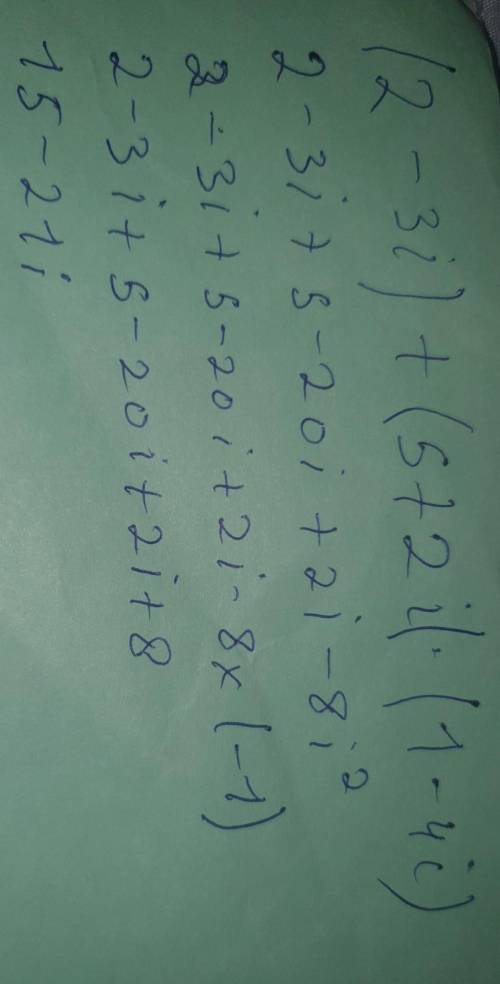 (2 - 3i) + (5 + 2i). (1 - 4i)
2 - 3i + 5 - 20i + 2i - 8i²
2 - 3i + 5 - 20i + 2i - 8x (-1)
2 - 3i + 5 - 20i + 2i + 8
15 - 21i